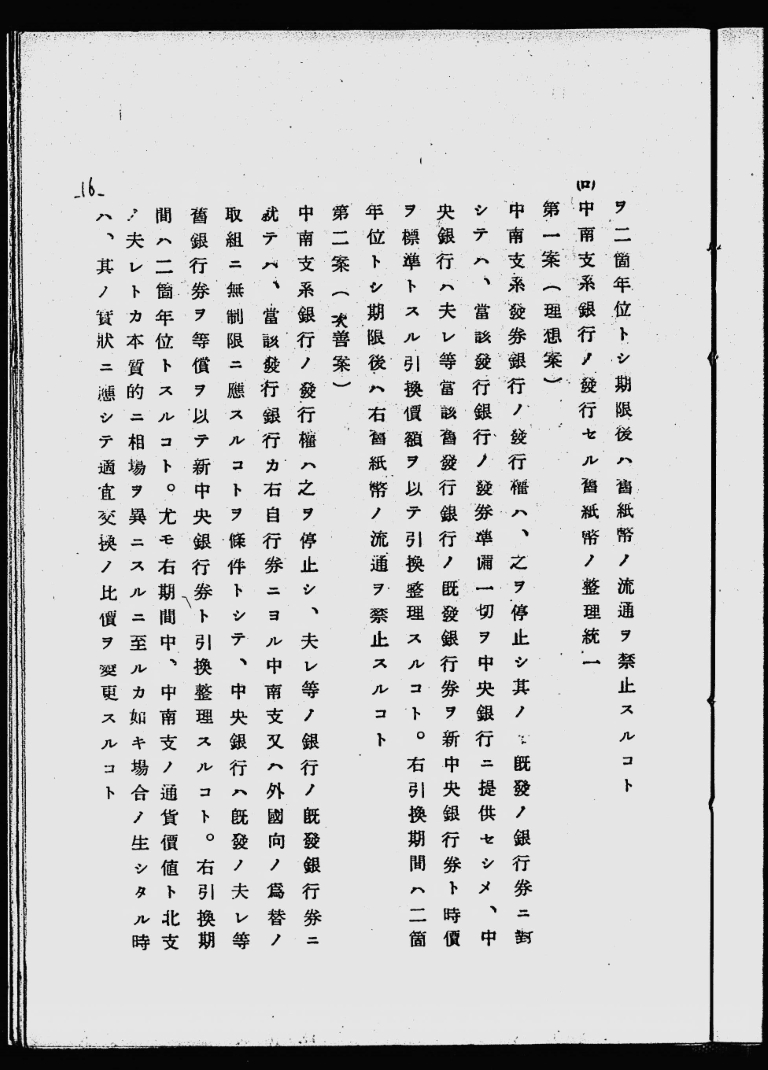 ヲ二箇年位トシ期限後ハ舊紙幣ノ流通ヲ禁止スルコト
(ロ)中南支系銀行ノ發行セル舊紙幣ノ整理統一
第一案(理想案)
中南支系發券銀行ノ發行權ハ、之ヲ停止シ其ノ既發ノ銀行券ニ對
シテハ、當該發行銀行ノ發券準備一切ヲ中央銀行ニ提供セシメ、中
央銀行ハ夫レ等當該舊發行銀行ノ既發銀行券ヲ新中央銀行券ト時價
ヲ標準トスル引換價額ヲ以テ引換整理スルコト。右引換期間ハ二箇
年位トシ期限後ハ右舊紙幣ノ流通ヲ禁止スルコト
第二案(次善案)
中南支系銀行ノ發行權ハ之ヲ停止シ、夫レ等ノ銀行ノ既發銀行券ニ
就テハ、當該發行銀行カ右自行券ニヨル中南支又ハ外國向ノ爲替ノ
取組ニ無制限ニ應スルコトヲ條件トシテ、中央銀行ハ既發ノ夫レ等
舊銀行券ヲ等價ヲ以テ新中央銀行券ト引換整理スルコト。右引換期
間ハ二箇年位トスルコト。尤モ右期間中、中南支ノ通貨價値ト北支
ノ夫レトカ本質的ニ相場ヲ異ニスルニ至ルカ如キ場合ノ生シタル時
ハ、其ノ實狀ニ應シテ適宜交換ノ比價ヲ變更スルコト
-16-